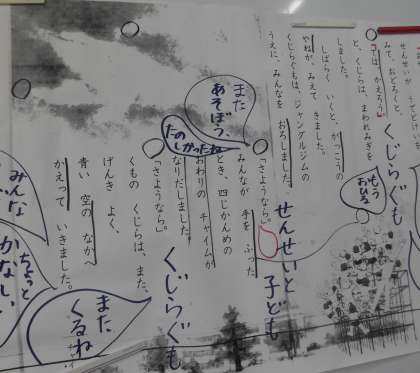 みて、おどろくと、
「では、かえろう。」
と、くじらは、まわれみぎを
しました。
しばらく いくと、がっこうの
やねが、みえて きました。
くじらぐもは、ジャングルジムの
うえに、みんなを おろしました。
「さようなら。」
みんなが 手を ふった
とき、四じかんめの
おわりの チャイムが
なりだしました。
「さようなら。」
くもの くじらは、また、
げんき よく、
青い 空の なかへ
かえって いきました。
くじらぐも
もう
おひる
せんせいと
子ども
また
あそぼう。
たの
しかったね
くじらぐも
また
くるね
みんな
ちょっと
かなしい